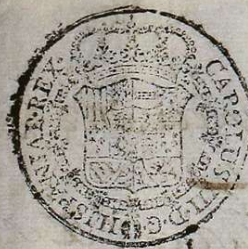 CAROLUS D·G·HISPANIAR·REX·